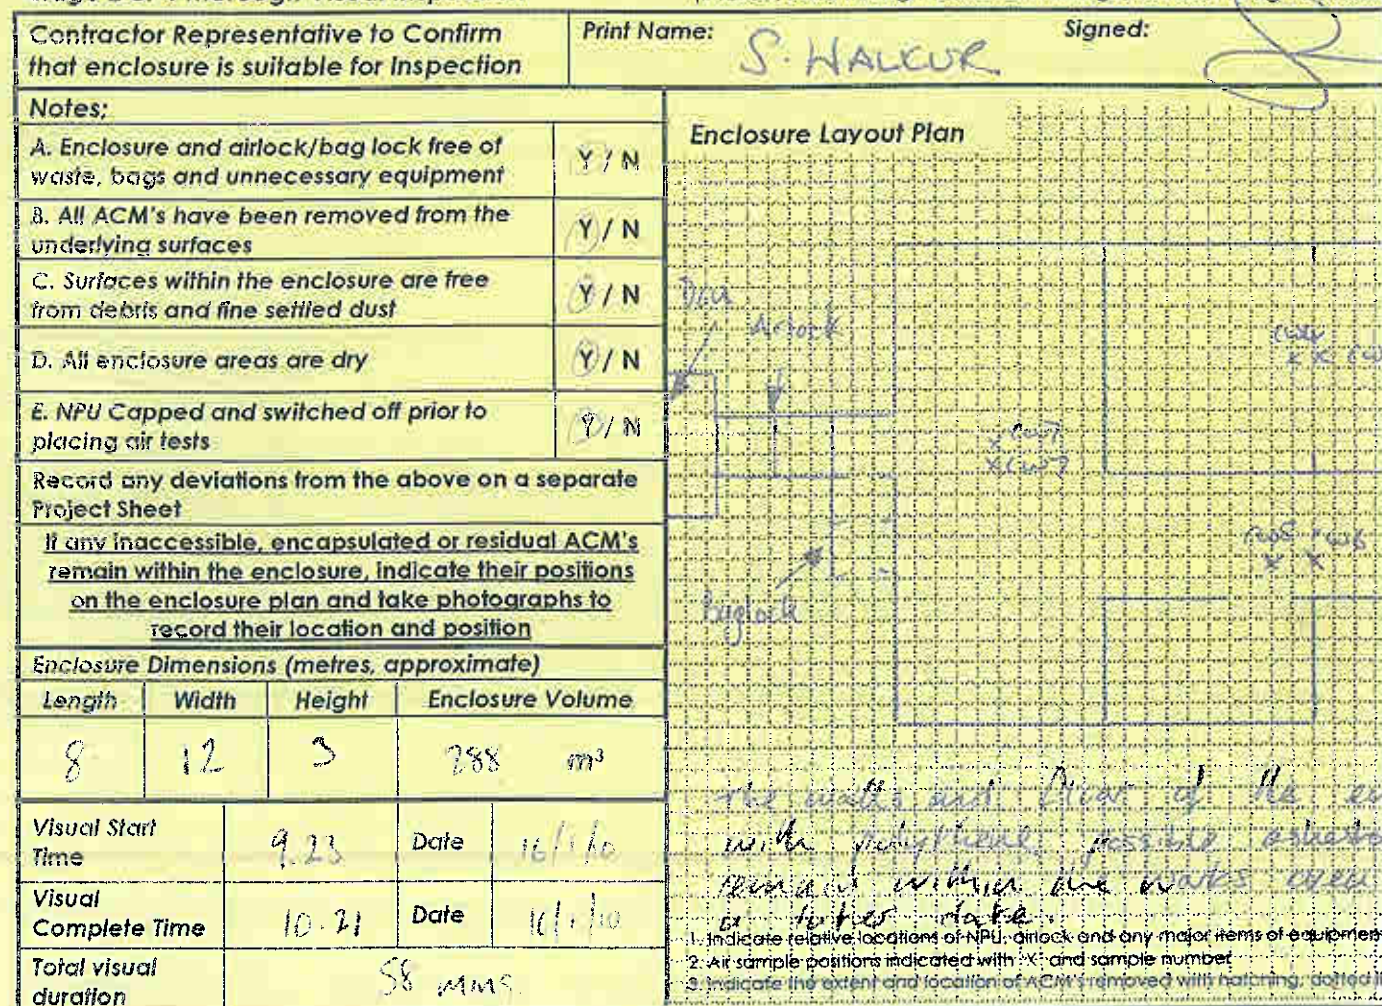 Contractor Representative to Confirm
that enclosure is suitable for Inspection
Print Name: S. HALKUR
Signed:
Notes;
A. Enclosure and airlock/bag lock free of
waste, bags and unnecessary equipment
Y / N
B. All ACM's have been removed from the
underlying surfaces
Y / N
C. Surfaces within the enclosure are free
from debris and fine settled dust
Y / N
D. All enclosure areas are dry
Y / N
E. NPU Capped and switched off prior to
placing air tests
Y / N
Record any deviations from the above on a separate
Project Sheet
If any inaccessible, encapsulated or residual ACM's
remain within the enclosure, indicate their positions
on the enclosure plan and take photographs to
record their location and position
Enclosure Dimensions (metres, approximate)
Length Width Height Enclosure Volume
8 12 3 288 m³
Visual Start
Time
9.23
Date
Visual
Complete Time
10.21
Date
Total visual
duration
58 mins
Enclosure Layout Plan
Airlock
Baglock
the walls and floor of the
with polythene, possible
remain within the works area
a later date.
1. Indicate relative locations of NPU, airlock and any major items of
2. Air sample positions indicated with 'X' and sample number
3. Indicate the extent and location of ACM's removed with hatching, dotted